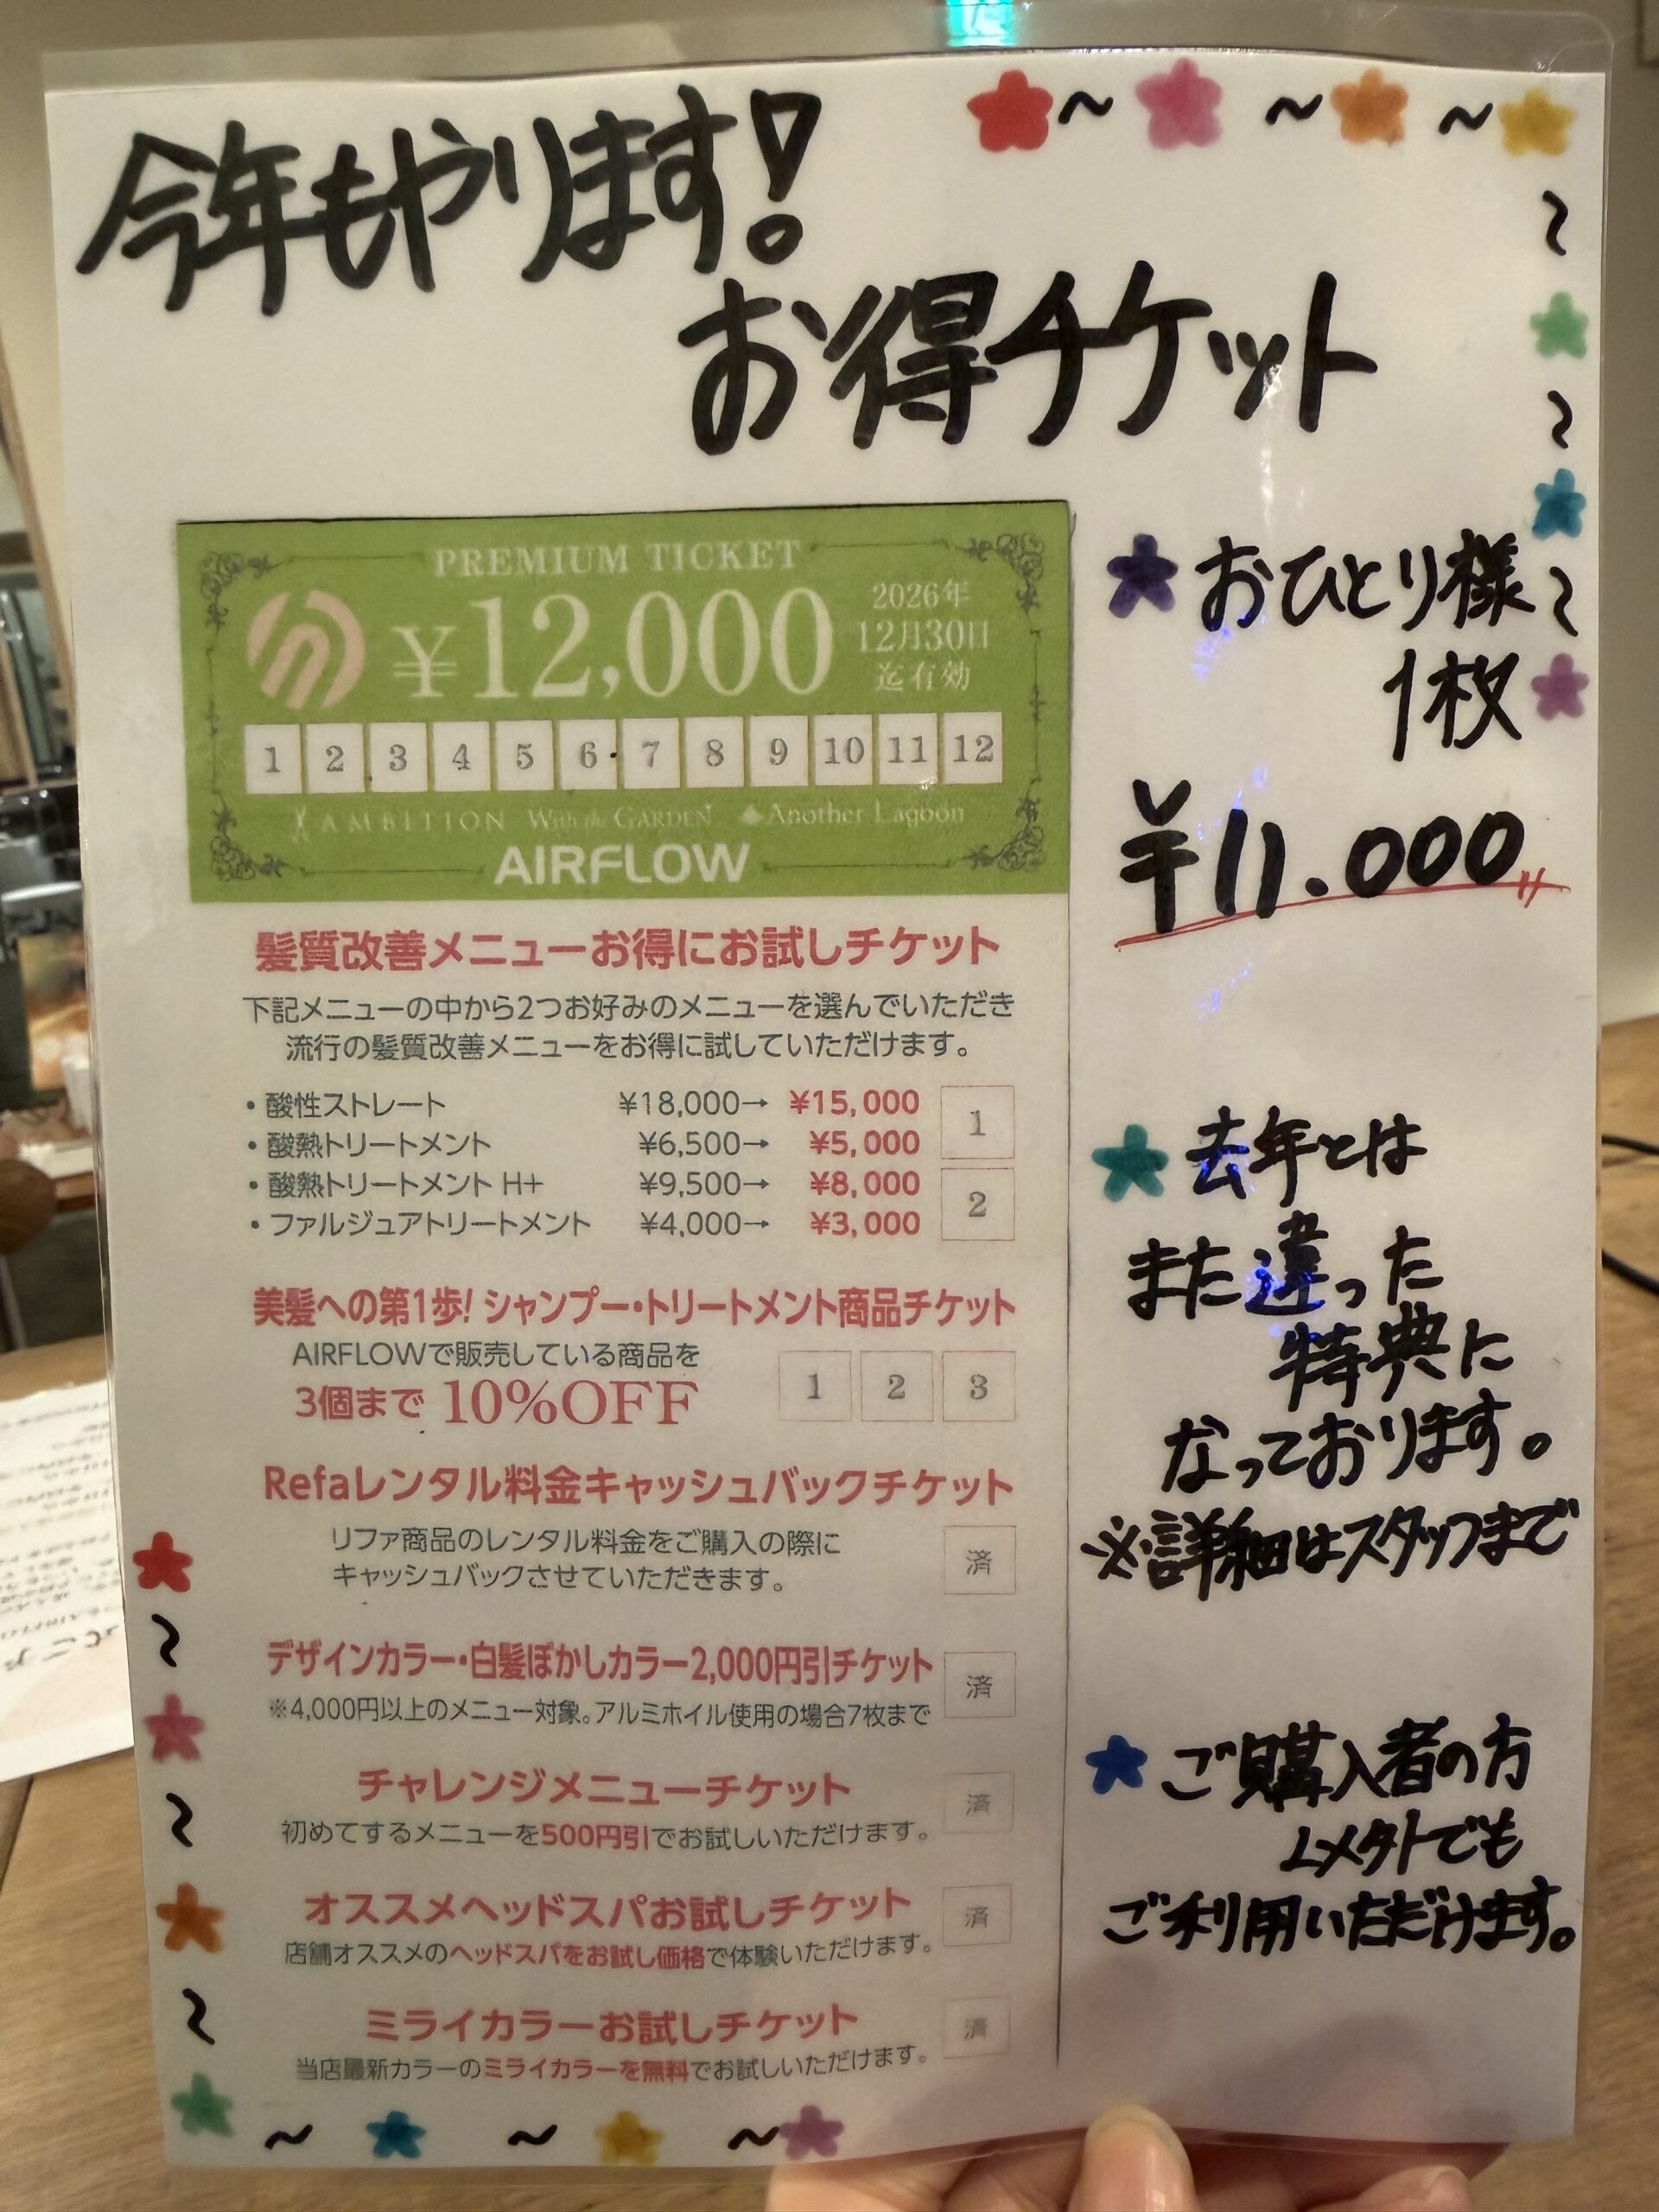 今年もやります!
お得チケット
PREMIUM TICKET
¥12,000
2026年
12月30日
迄有効
1 2 3 4 5 6 7 8 9 10 11 12
AMBITION With the GARDEN Another Lagoon
AIRFLOW
髪質改善メニューお得にお試しチケット
下記メニューの中から2つお好みのメニューを選んでいただき
流行の髪質改善メニューをお得に試していただけます。
・酸性ストレート ¥18,000→ ¥15,000
・酸熱トリートメント ¥6,500→ ¥5,000
・酸熱トリートメント H+ ¥9,500→ ¥8,000
・ファルジュアトリートメント ¥4,000→ ¥3,000
1
2
美髪への第1歩! シャンプー・トリートメント商品チケット
AIRFLOWで販売している商品を
3個まで 10%OFF
1 2 3
Refaレンタル料金キャッシュバックチケット
リファ商品のレンタル料金をご購入の際に
キャッシュバックさせていただきます。
済
デザインカラー・白髪ぼかしカラー2,000円引チケット
※4,000円以上のメニュー対象。アルミホイル使用の場合7枚まで
済
チャレンジメニューチケット
初めてするメニューを500円引でお試しいただけます。
済
オススメヘッドスパお試しチケット
店舗オススメのヘッドスパをお試し価格で体験いただけます。
済
ミライカラーお試しチケット
当店最新カラーのミライカラーを無料でお試しいただけます。
済
おひとり様
1枚
¥11.000
去年とは
また違った
特典に
なっております。
※詳細はスタッフまで
ご購入者の方
以外でも
ご利用いただけます。